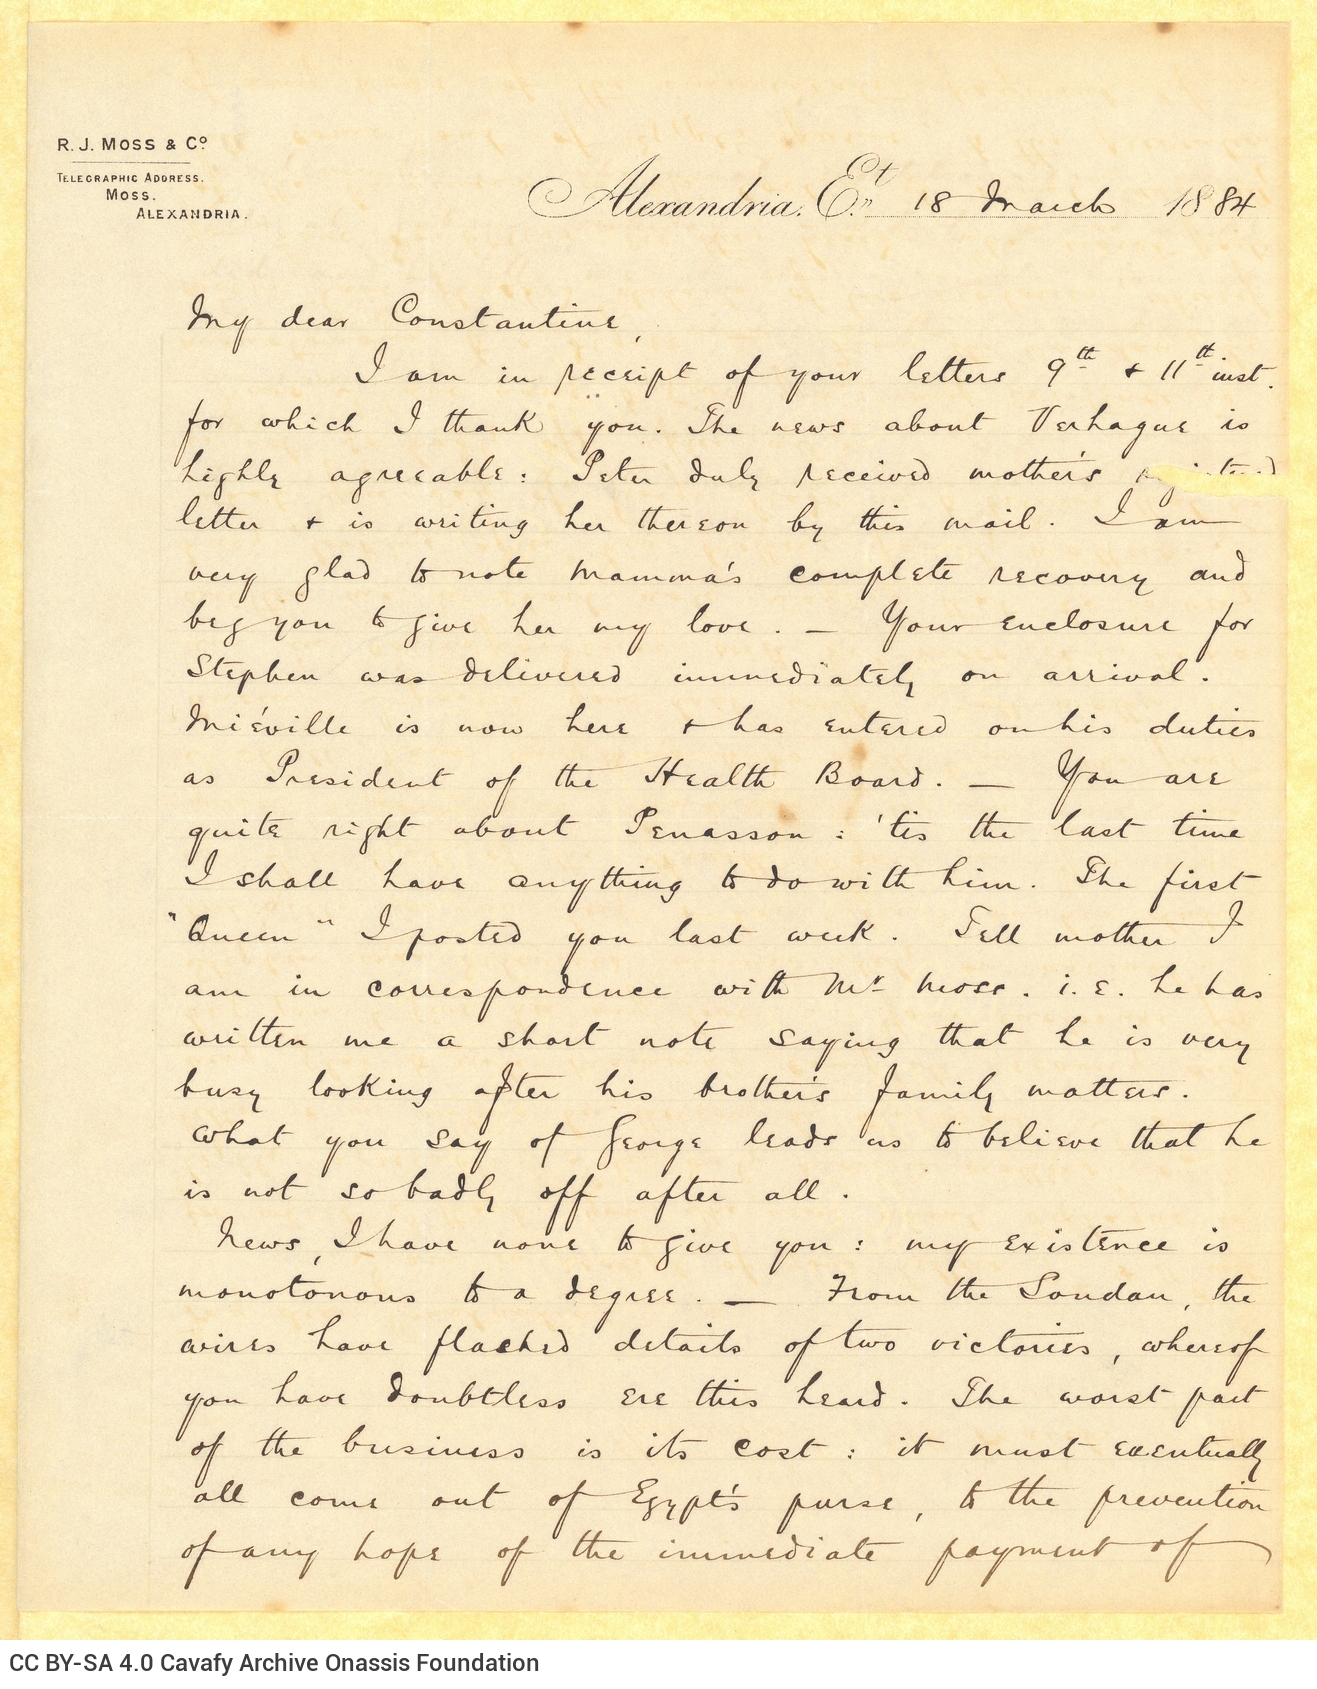 R. J. MOSS & Cº
TELEGRAPHIC ADDRESS.
MOSS.
ALEXANDRIA.
Alexandria. Et 18 March 1884
My dear Constantine,
I am in receipt of your letters 9th & 11th inst.
for which I thank you. The news about Verhague is
highly agreeable: Peter duly received mother's
letter & is writing her thereon by this mail. I am
very glad to note Mamma's complete recovery and
beg you to give her my love. — Your enclosure for
Stephen was delivered immediately on arrival.
Miéville is now here & has entered on his duties
as President of the Health Board. — You are
quite right about Penasson: 'tis the last time
I shall have anything to do with him. The first
"Queen" I posted you last week. Tell mother I
am in correspondence with Mr Moss. i.e. he has
written me a short note saying that he is very
busy looking after his brother's family matters.
What you say of George leads us to believe that he
is not so badly off after all.
News, I have none to give you: my existence is
monotonous to a degree. — From the Soudan, the
wires have flashed details of two victories, whereof
you have doubtless ere this heard. The worst part
of the business is its cost: it must eventually
all come out of Egypt's purse, to the prevention
of any hope of the immediate payment of
CC BY-SA 4.0 Cavafy Archive Onassis Foundation